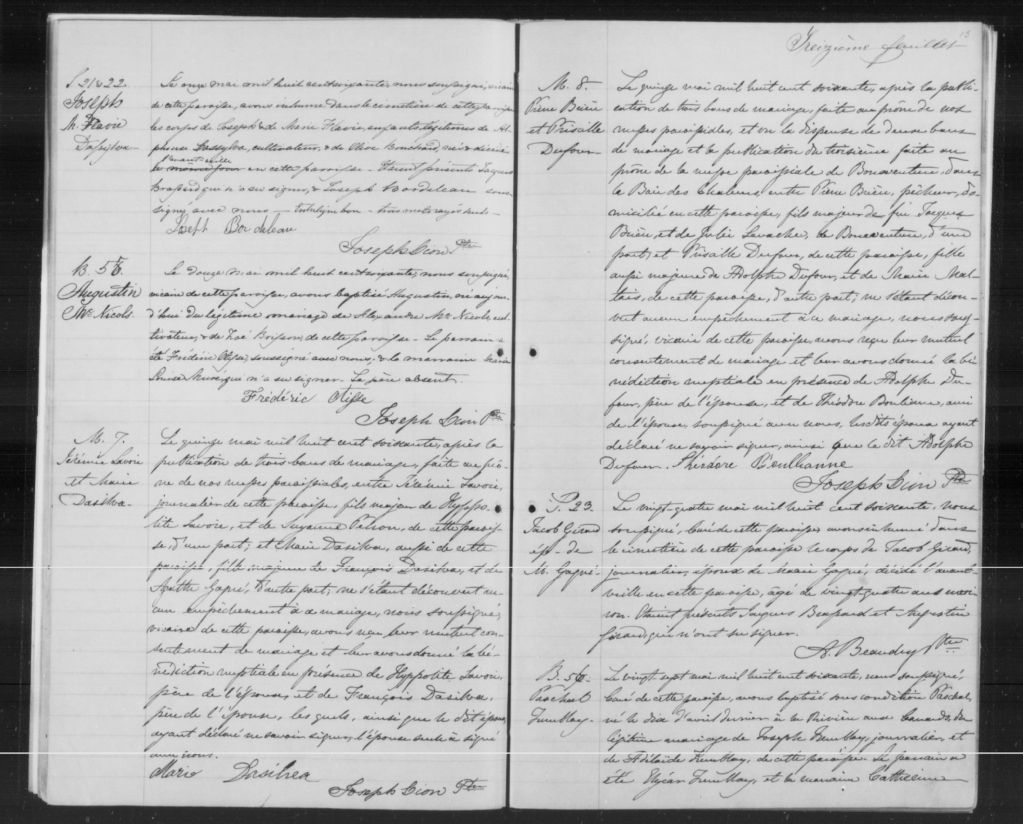 S. 21 & 22.
Joseph
M. Flavie
Dasylva
Le onze mai mil huit cent soixante, nous soussigné, vicaire
de cette paroisse, avons inhumé dans le cimetière de cette paroisse
les corps de Joseph & de Marie Flavie, enfants légitimes de Al-
phonse Dassylva, cultivateur, & de Olive Bouchard, nés & décédés
l'avant-veille
le même jour en cette paroisse. Etaient présents Jacques
Brassard qui n'a su signer, & Joseph Bordeleau sous-
signé avec nous — trois mots rayés nuls —
Joseph Bordeleau
Joseph Dion Ptre
B. 55.
Augustin
Mc Nicols.
Le douze mai mil huit cent soixante, nous soussigné,
vicaire de cette paroisse, avons baptisé Augustin, né aujour-
d'hui du légitime mariage de Alexandre Mc Nicols, cul-
tivateur, & de Zoé Boisson de cette paroisse. Le parrain a
été Frédéric soussigné avec nous, & la marraine Marie
Louise qui n'a su signer. Le père absent.
Frédéric
Joseph Dion Ptre
M. 7.
Jérémie Savoie
et Marie
Dasilva.
Le quinze mai mil huit cent soixante, après la
publication de trois bans de mariage, faite au prô-
ne de nos messes paroissiales, entre Jérémie Savoie,
journalier de cette paroisse, fils majeur de Hyppo-
lite Savoie, et de Suzanne de cette parois-
se, d'une part; et Marie Dasilva, aussi de cette
paroisse, fille majeure de François Dasilva, et de
Gagné, d'autre part; ne s'étant découvert au-
cun empêchement à ce mariage, nous soussigné,
vicaire de cette paroisse, avons reçu leur mutuel con-
sentement de mariage et leur avons donné la bé-
nédiction nuptiale en présence de Hyppolite Savoie,
père de l'époux, et de François Dasilva,
père de l'épouse, lesquels, ainsi que le dit époux,
ayant déclaré ne savoir signer, l'épouse seule a signé
avec nous.
Marie Dasilvea
Joseph Dion Ptre
Treizième feuillet
13
M. 8.
Pierre Brière
et Priscille
Dufour
Le quinze mai mil huit cent soixante, après la publi-
cation de trois bans de mariage, faite au prône de nos
messes paroissiales, et vu la dispense de deux bans
de mariage et la publication du troisième faite au
prône de la messe paroissiale de Bonaventure, dans
la Baie des Chaleurs entre Pierre Brière, pêcheur, do-
micilié en cette paroisse, fils majeur de feu Jacques
Brière, et de Julie de Bonaventure, d'une
part; et Priscille Dufour, de cette paroisse, fille
aussi majeure de Adolphe Dufour, et de Marie Mal-
tais, de cette paroisse, d'autre part; ne s'étant décou-
vert aucun empêchement à ce mariage, nous sous-
signé, vicaire de cette paroisse, avons reçu leur mutuel
consentement de mariage et leur avons donné la bé-
nédiction nuptiale en présence de Adolphe Du-
four, père de l'épouse, et de Théodore Boulianne, ami
de l'épouse, soussigné avec nous, les dits époux ayant
déclaré ne savoir signer, ainsi que le dit Adolphe
Dufour. Théodore Boulianne
Joseph Dion Ptre
S. 23.
Jacob Girard
ép. de
M. Gagné.
Le vingt-quatre mai mil huit cent soixante, nous
soussigné, Curé de cette paroisse, avons inhumé dans
le cimetière de cette paroisse le corps de Jacob Girard,
journalier, époux de Marie Gagné, décédé l'avant-
veille en cette paroisse, âgé de vingt-quatre ans envi-
ron. Etaient présents Jacques Brassard et Augustin
Girard, qui n'ont su signer.
A. Beaudry Ptre
B. 56.
Paschal
Tremblay.
Le vingt sept mai mil huit cent soixante, nous soussigné,
Curé de cette paroisse, avons baptisé sous condition Paschal,
né le dix d'avril dernier à la Rivière aux Canards, du
légitime mariage de Joseph Tremblay, journalier, et
de Adélaïde Tremblay, de cette paroisse. Le parrain a
été Elzéar Tremblay, et la marraine Catherine